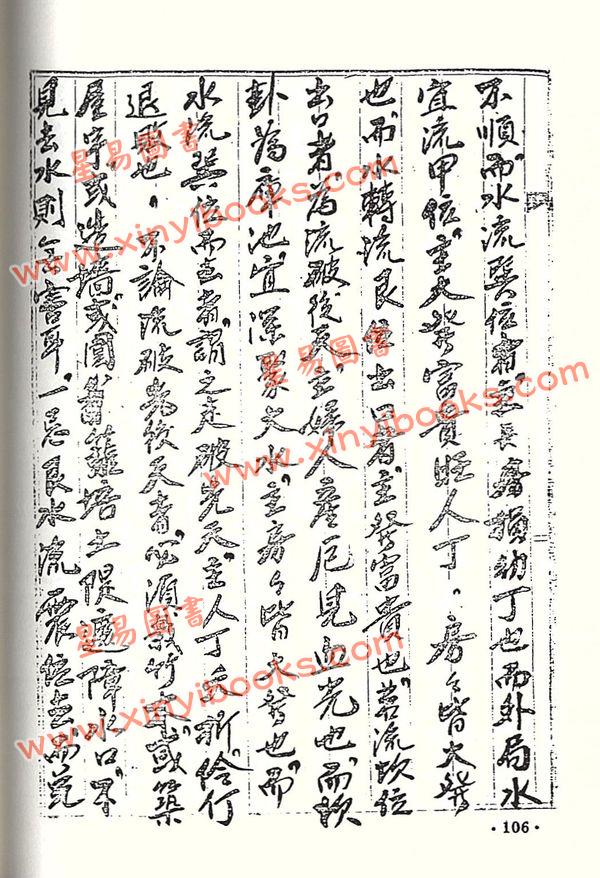 不順而水流巽位者主長房損幼丁也而外局水
宜流甲位主大發富貴旺人丁。房房皆大發
也而水轉流艮位出口者主發富貴也若流坎位
出口者為流破後天主婦人產厄見血光也而坎
卦為庫池宜深聚大水主房房皆大發也而
水流巽位而去者謂之走破先天主人丁夭折伶仃
退敗也。不論流破先後天者必須栽竹木或築
屋宇或造墻或圍著籬培土隄遮障水口不
見去水則無害耳一忌艮水流震位去而兌
·106·
星易图書
www.xinyibooks.com
星易图書
www.xinyibooks.com
星易图書
www.xinyibooks.com